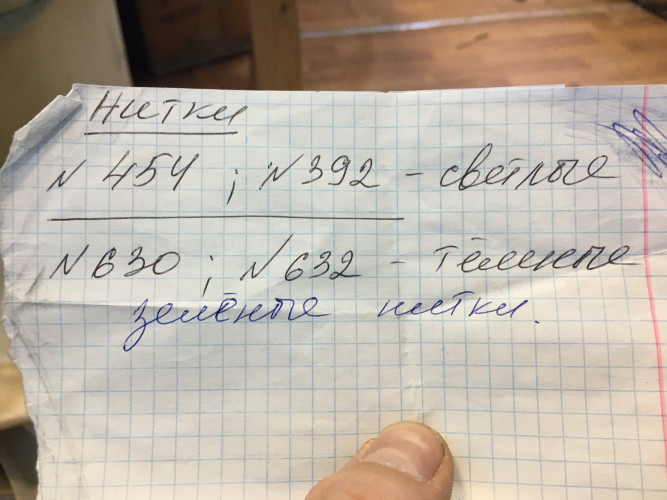 Нитки
N 454 ; N 392 - светлые
N 630 ; N 632 - тёмные
зелёные нитки.